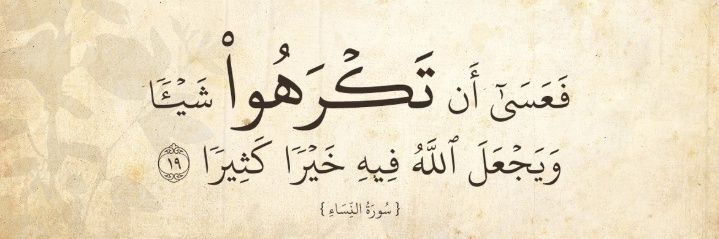 فَعَسَىٰٓ أَن تَكۡرَهُواْ شَيۡـٔٗا
وَيَجۡعَلَ ٱللَّهُ فِيهِ خَيۡرٗا كَثِيرٗا ١٩
{ سُورَةُ النِّسَاءِ }